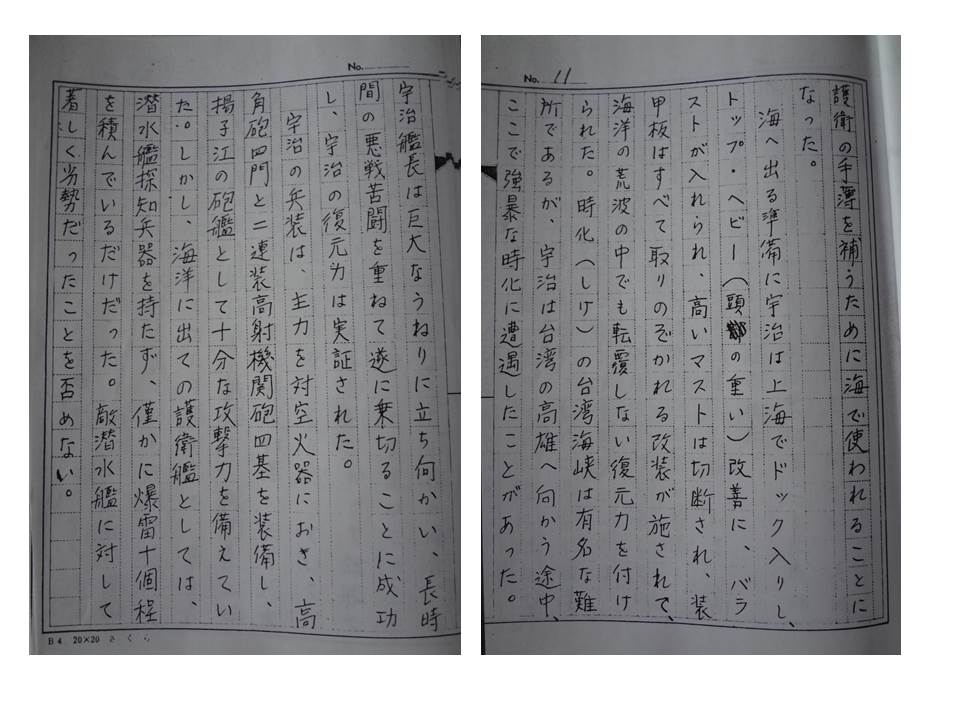 No. 11
護衛の手薄を補うために海で使われることに
なった。
海へ出る準備に宇治は上海でドック入りし、
トップ・ヘビー(頭の重い)改善に、バラ
ストが入れられ、高いマストは切断され、装
甲板はすべて取りのぞかれる改装が施されて、
海洋の荒波の中でも転覆しない復元力を付け
られた。時化(しけ)の台湾海峡は有名な難
所であるが、宇治は台湾の高雄へ向かう途中、
ここで強暴な時化に遭遇したことがあった。
No.
宇治艦長は巨大なうねりに立ち何かい、長時
間の悪戦苦闘を重ねて遂に乗切ることに成功
し、宇治の復元力は実証された。
宇治の兵装は、主力を対空火器におき、高
角砲四門と二連装高射機関砲四基を装備し、
揚子江の砲艦として十分な攻撃力を備えてい
た。しかし、海洋に出ての護衛艦としては、
潜水艦探知兵器を持たず、僅かに爆雷十個程
を積んでいるだけだった。敵潜水艦に対して
著しく劣勢だったことを否めない。
B4 20×20 さくら